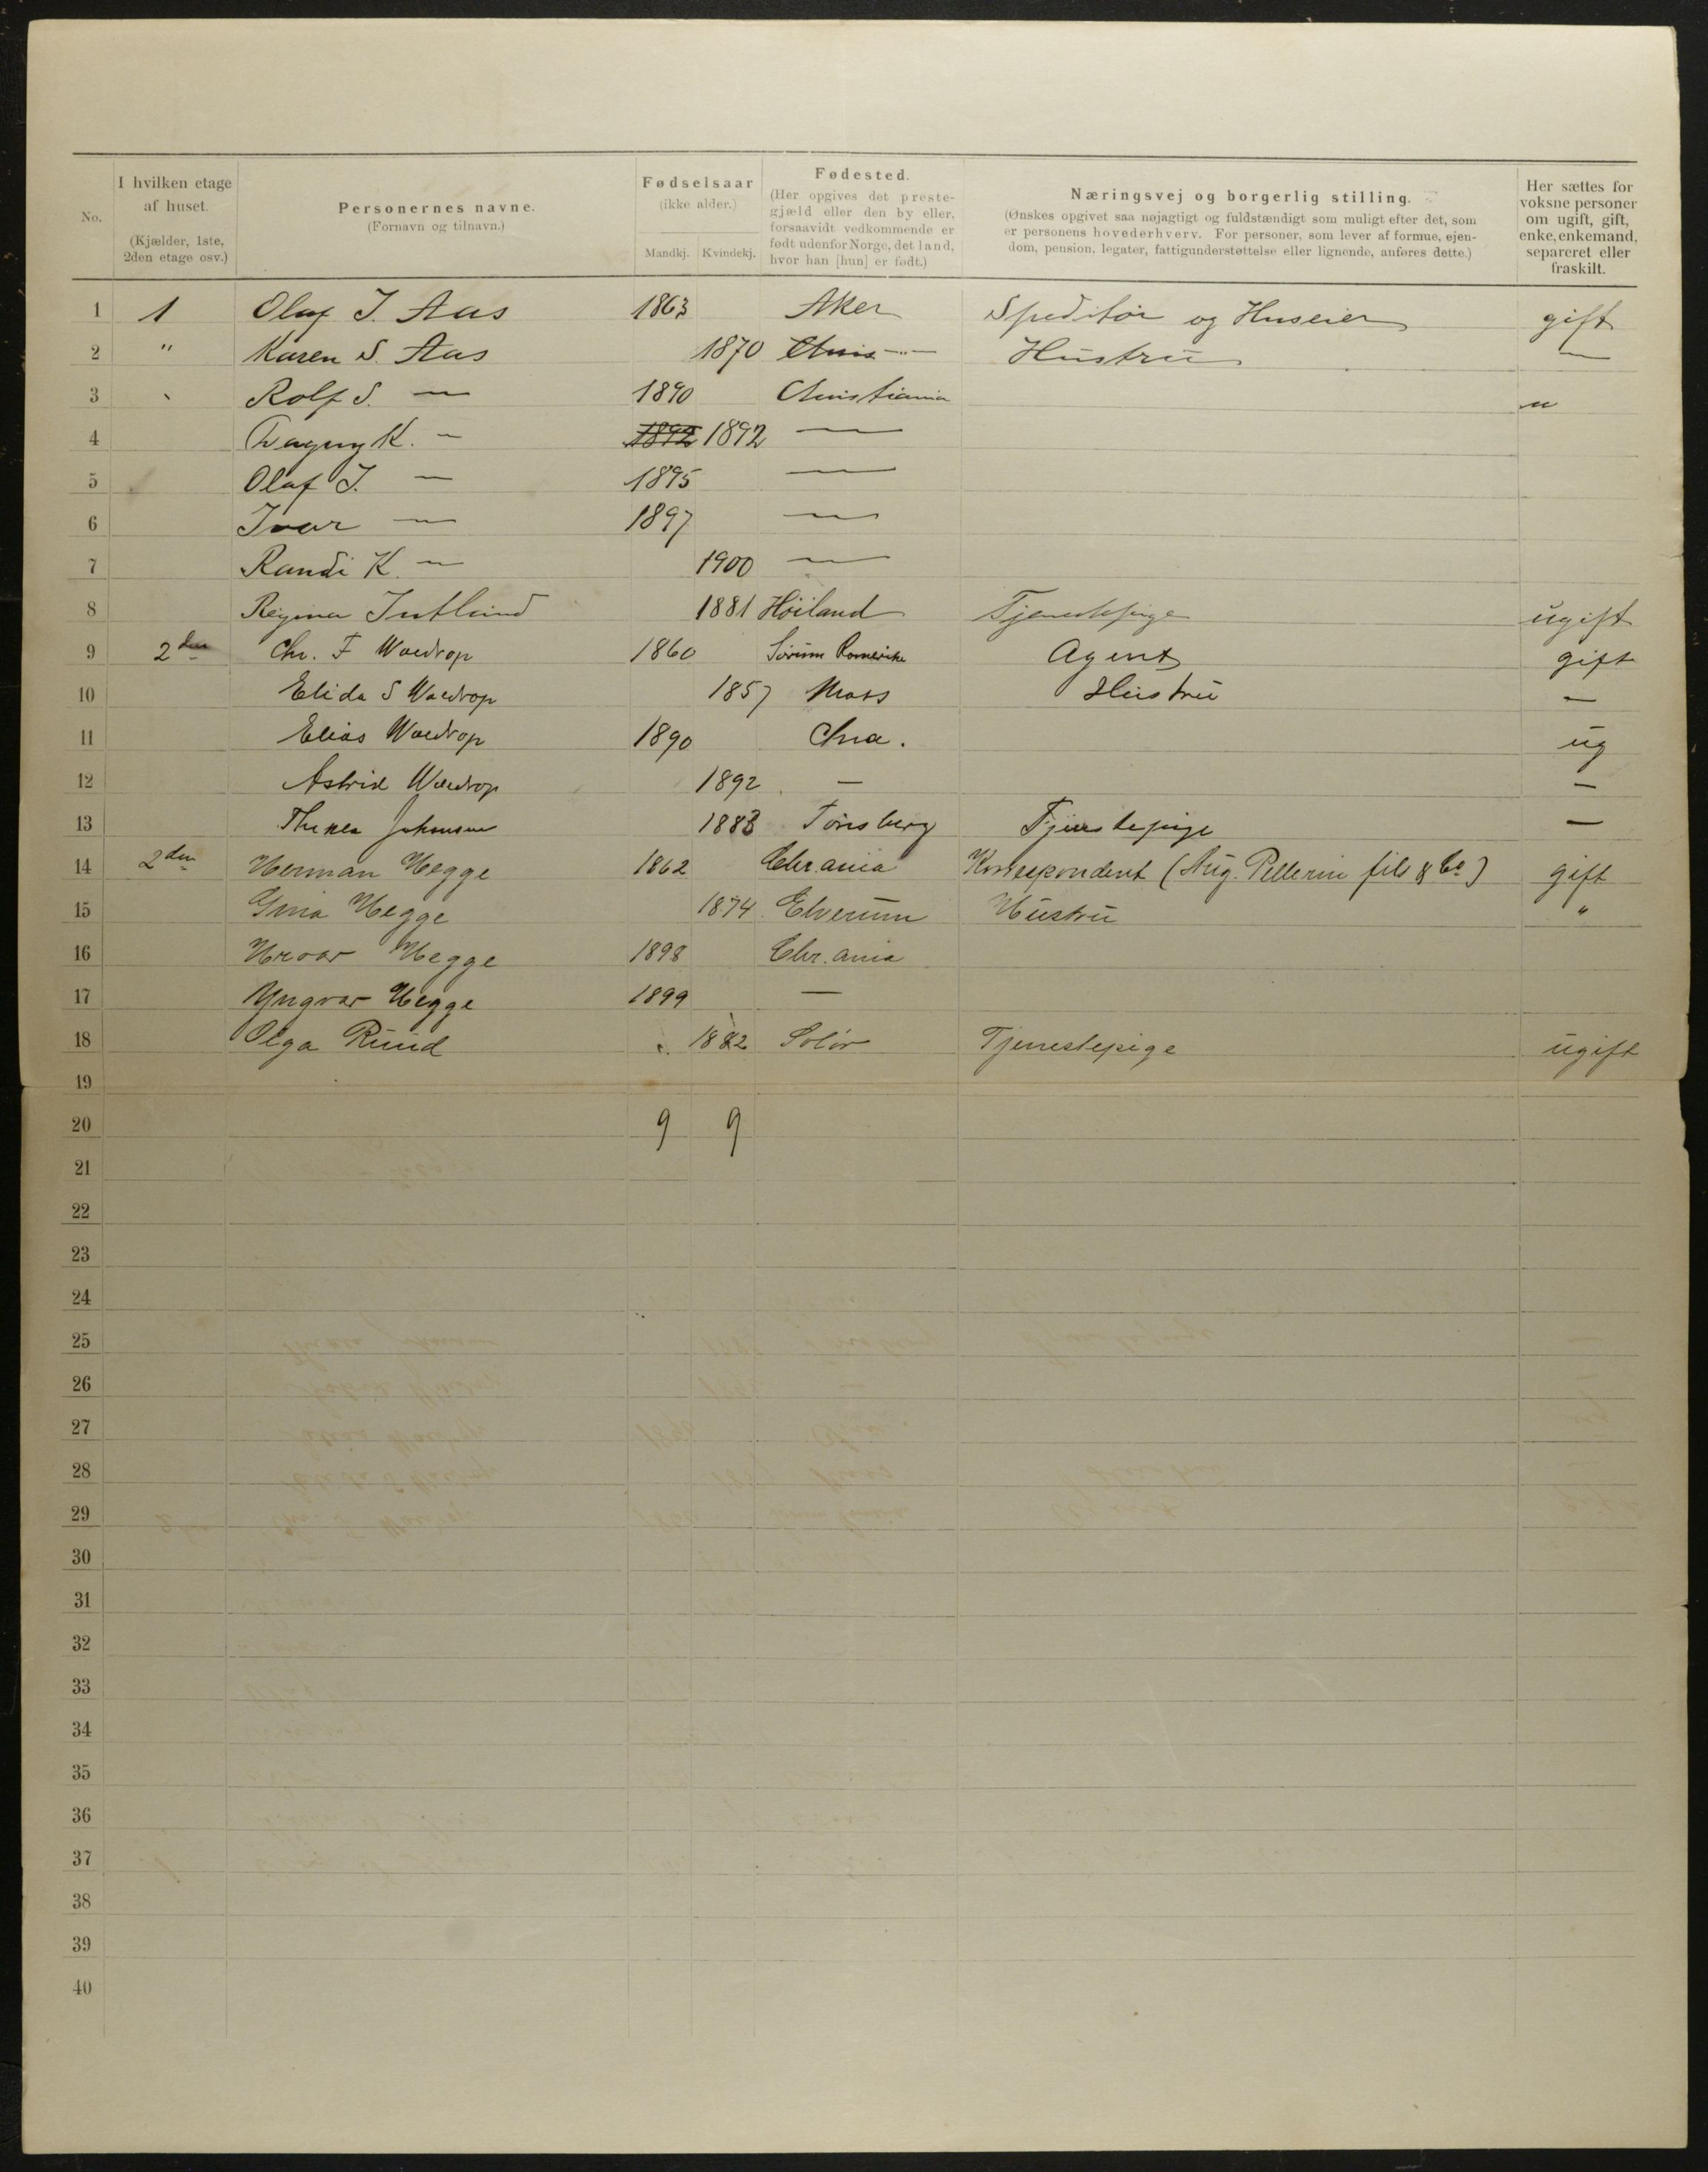 No.
I hvilken etage af huset. (Kjælder, 1ste, 2den etage osv.)
Personernes navne. (Fornavn og tilnavn.)
Fødselsaar (ikke alder.) Mandkj. Kvindekj.
Fødested. (Her opgives det prestegjæld eller den by eller, forsaavidt vedkommende er født udenfor Norge, det land, hvor han [hun] er født.)
Næringsvej og borgerlig stilling. (Ønskes opgivet saa nøjagtigt og fuldstændigt som muligt efter det, som er personens hovederhverv. For personer, som lever af formue, ejendom, pension, legater, fattigunderstøttelse eller lignende, anføres dette.)
Her sættes for voksne personer om ugift, gift, enke, enkemand, separeret eller fraskilt.
1 1 Olaf J. Aas 1863 Aker Speditør og Huseier gift
2 " Karen S. Aas 1870 Chris -"- Hustru —
3 Rolf S. — 1890 Christiania
4 Dagny K. — 1892 1892 —
5 Olaf J. — 1895 —
6 Ivar — 1897 —
7 Randi K. — 1900 —
8 Regina 1881 Høiland Tjenestepige ugift
9 2den Chr. F Waldrop 1860 Sørum Romerike Agent gift
10 Elida S Waldrop 1857 Moss Hustru —
11 Elias Waldrop 1890 Chra. ug
12 Astrid Waldrop 1892 — —
13 Thea Johnsen 1883 Tønsberg Tjenstepige —
14 2den Herman Hegge 1862 Chr.ania Korrespondent (Aug. Pellerin fils & Co) gift
15 Gina Hegge 1874 Elverum Hustru "
16 Hroar Hegge 1898 Chr.ania
17 Yngvar Hegge 1899 —
18 Olga Ruud 1882 Solør Tjenestepige ugift
19
20 9 9
21
22
23
24
25
26
27
28
29
30
31
32
33
34
35
36
37
38
39
40